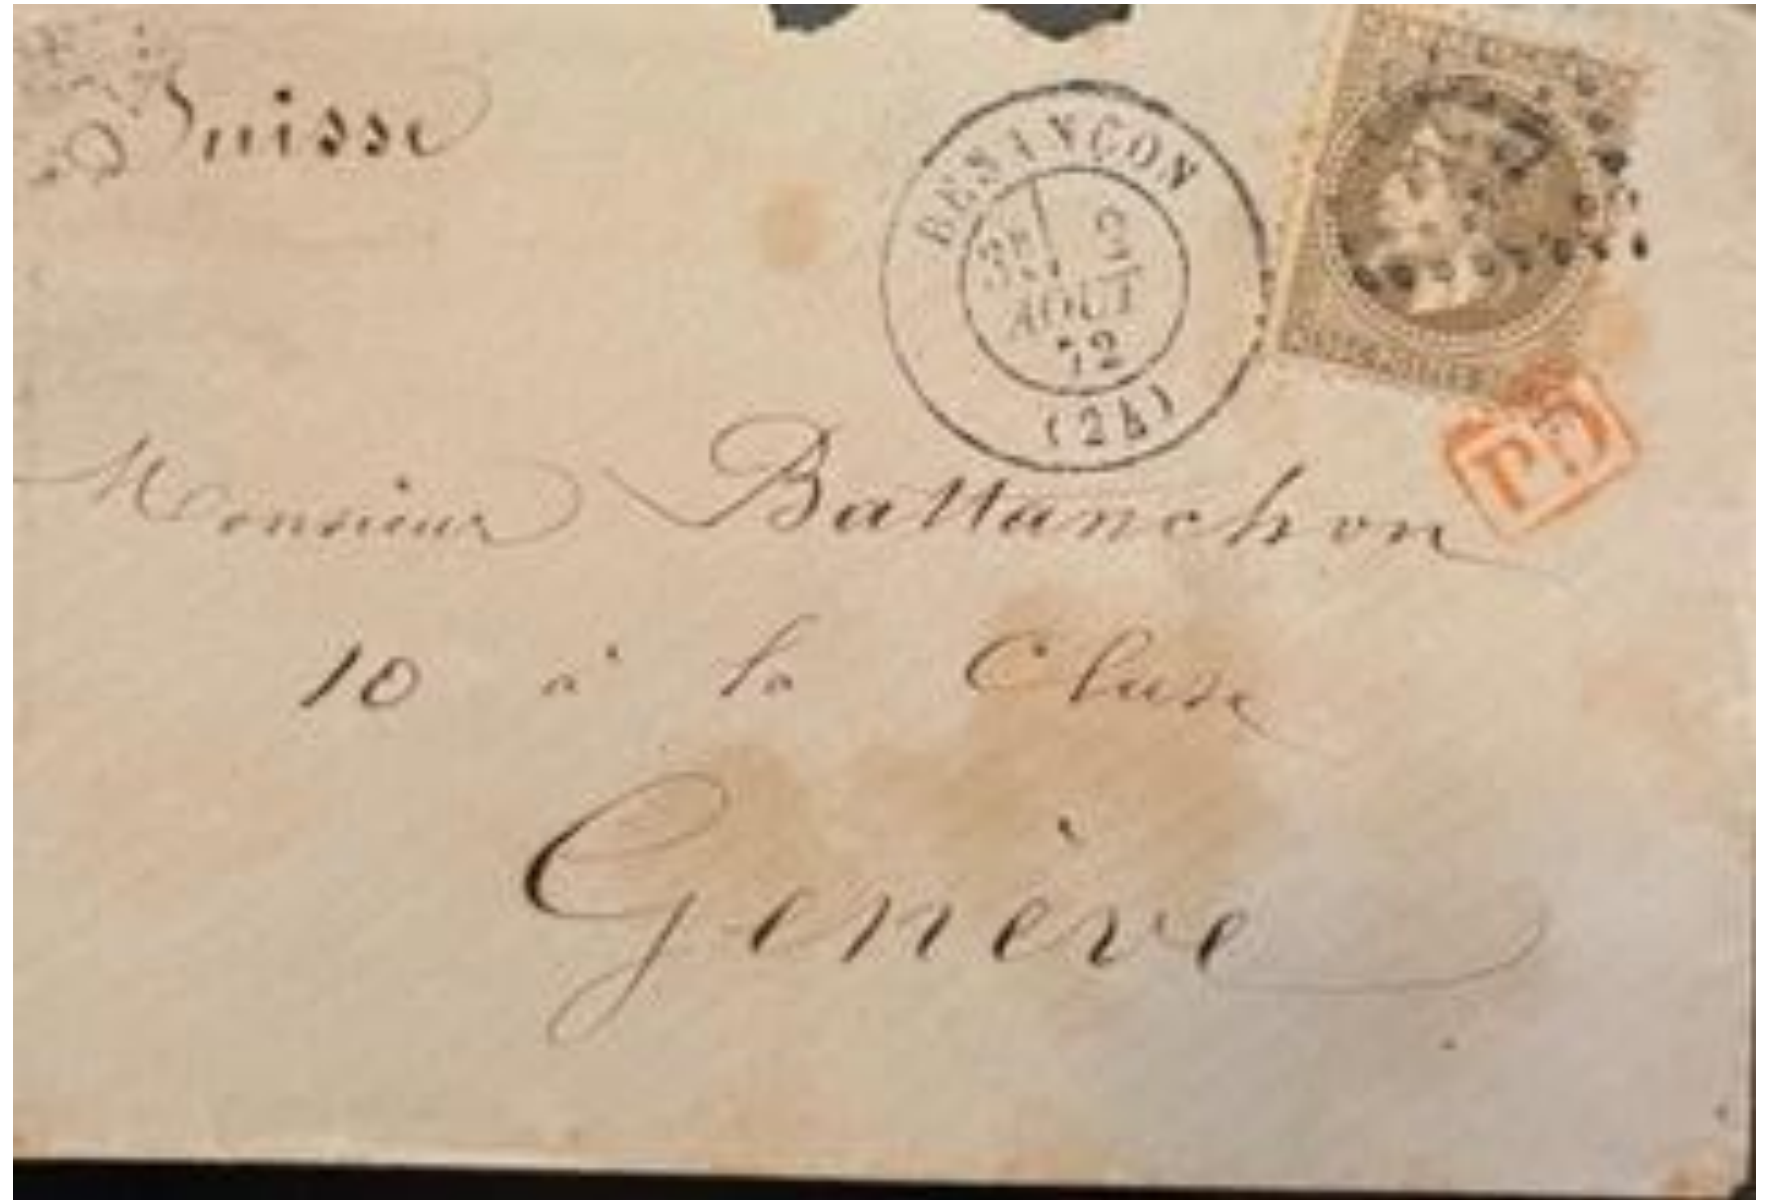 Suisse
BESANÇON
3E
AOUT
72
(24)
PD
Monsieur Battanchon
10 à la Cluse
Genève